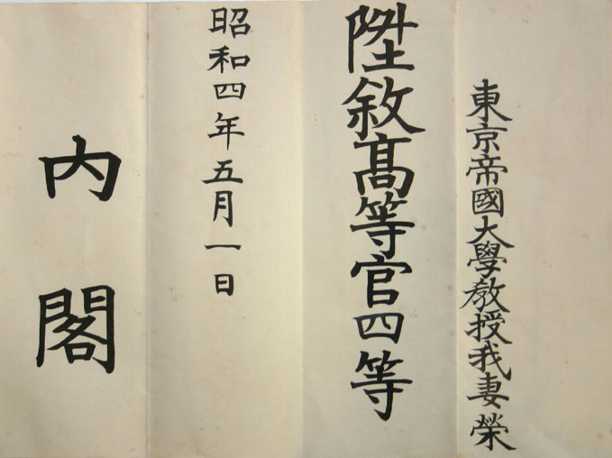 東京帝國大學教授我妻榮
陞敘高等官四等
昭和四年五月一日
内閣